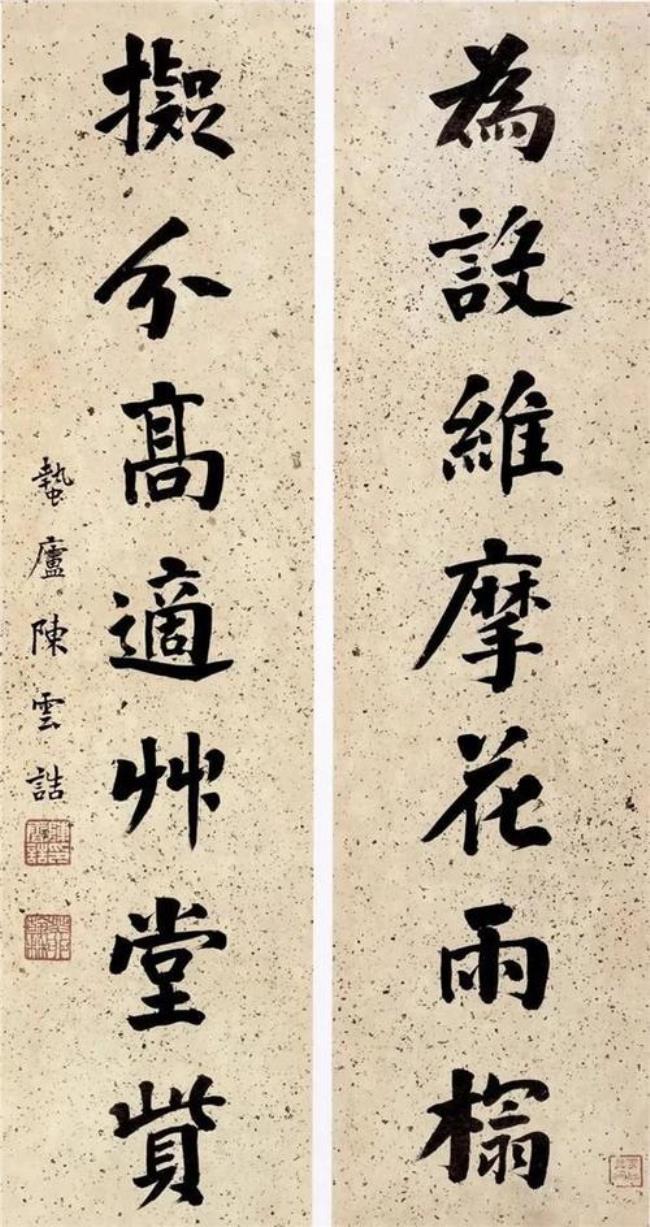 為設維摩花雨榻
擬分高適艸堂貲
蟄廬陳雲誥